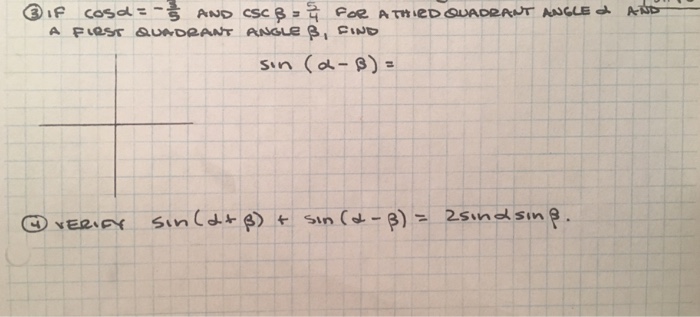 ③ IF cosα = -3/5 AND CSC β = 5/4 FOR A THIRD QUADRANT ANGLE α AND
A FIRST QUADRANT ANGLE β, FIND
sin (α - β) =
④ VERIFY sin(α + β) + sin (α - β) = 2sinα sinβ.